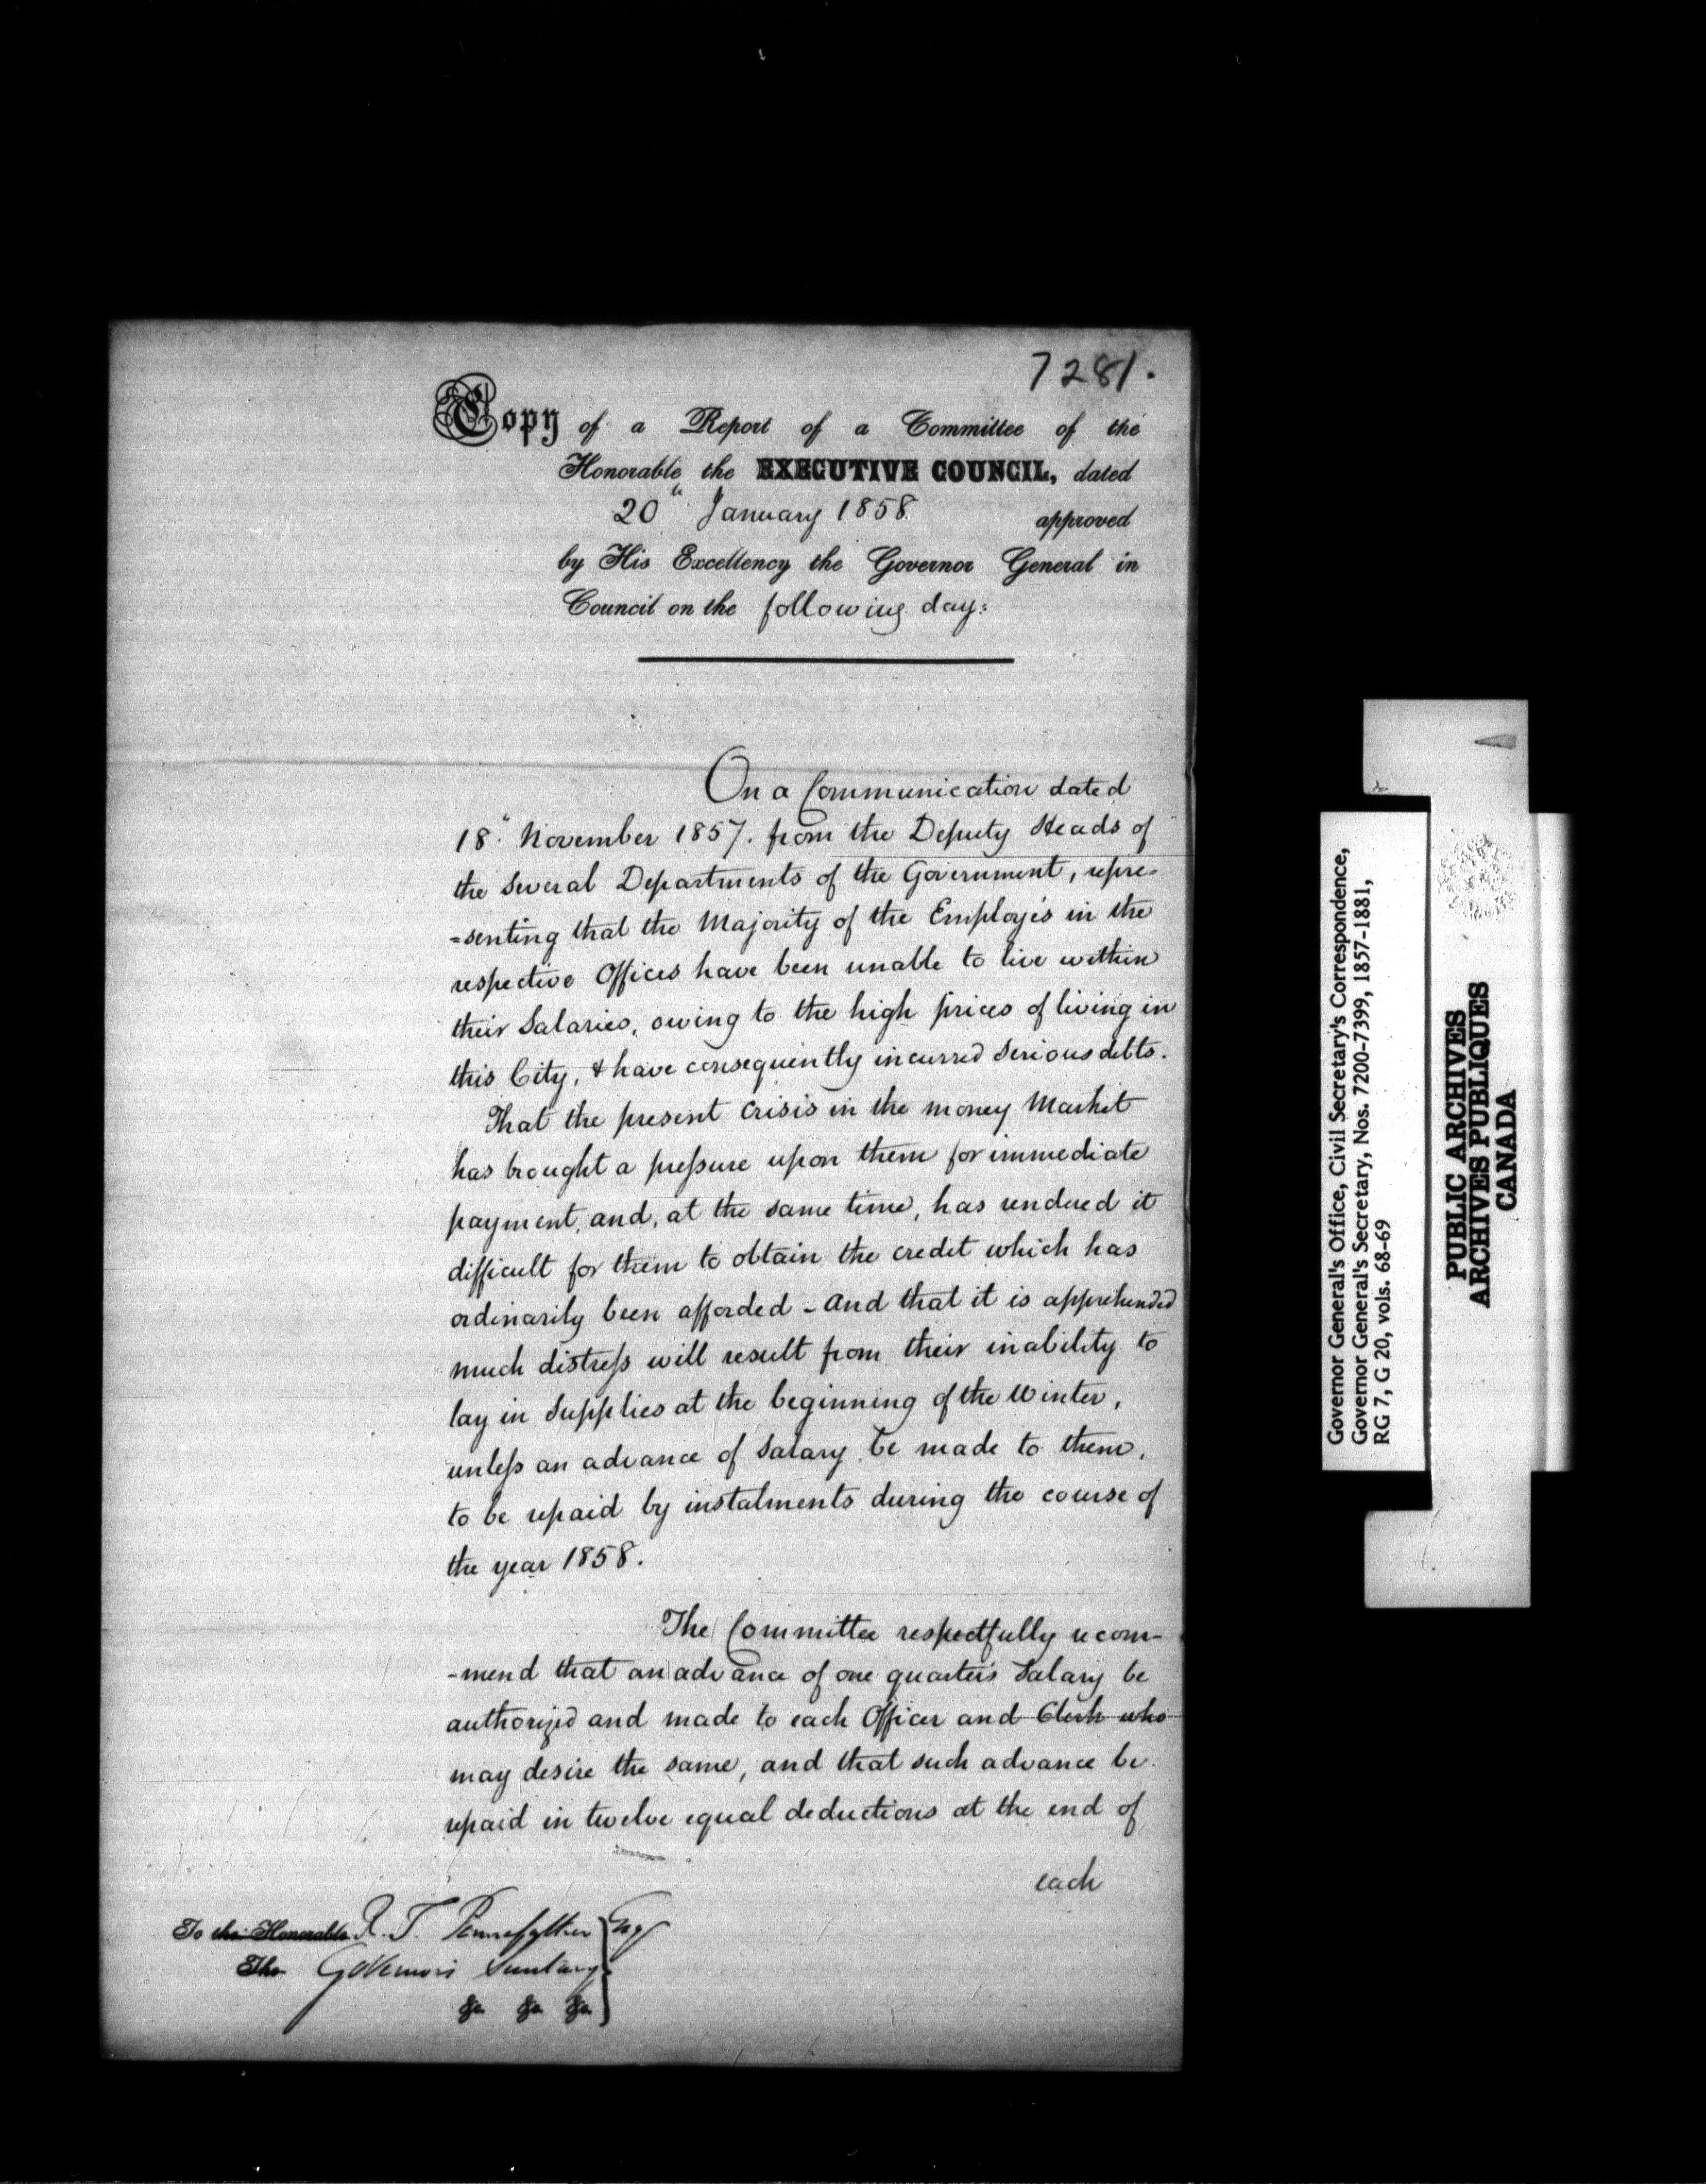 7281.
Copy of a Report of a Committee of the
Honorable the EXECUTIVE COUNCIL, dated
20" January 1858. approved
by His Excellency the Governor General in
Council on the following day:
On a Communication dated
18" November 1857. from the Deputy Heads of
the several Departments of the Government, repre-
=senting that the Majority of the Employés in the
respective Offices have been unable to live within
their Salaries, owing to the high prices of living in
this City, & have consequently incurred serious debts.
That the present crisis in the money Market
has brought a pressure upon them for immediate
payment, and, at the same time, has rendered it
difficult for them to obtain the credit which has
ordinarily been afforded - And that it is apprehended
much distress will result from their inability to
lay in supplies at the beginning of the Winter,
unless an advance of salary be made to them,
to be repaid by instalments during the course of
the year 1858.
The Committee respectfully recom-
-mend that an advance of one quarter's Salary be
authorized and made to each Officer and Clerk who
may desire the same, and that such advance be
repaid in twelve equal deductions at the end of
each
To the Honorable R. T. Pennefather Esq
The Governor's Secretary
&c. &c. &c.
Governor General's Office, Civil Secretary's Correspondence,
Governor General's Secretary, Nos. 7200-7399, 1857-1881,
RG 7, G 20, vols. 68-69
PUBLIC ARCHIVES
ARCHIVES PUBLIQUES
CANADA